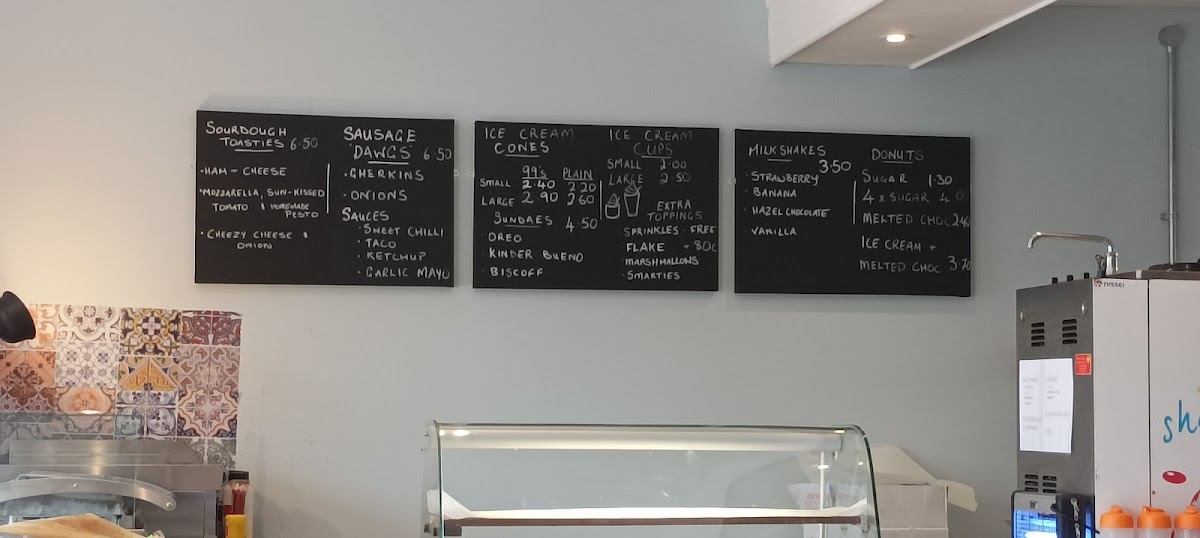 SOURDOUGH
TOASTIES 6.50
·HAM + CHEESE
·MOZZARELLA, SUN-KISSED
TOMATO & HOMEMADE
PESTO
·CHEEZY CHEESE &
ONION
SAUSAGE
'DAWGS' 6.50
·GHERKINS
·ONIONS
SAUCES
·SWEET CHILLI
·TACO
·KETCHUP
·GARLIC MAYO
ICE CREAM
CONES
99's PLAIN
SMALL 2.40 2.20
LARGE 2.90 2.60
SUNDAES 4.50
·OREO
·KINDER BUENO
·BISCOFF
ICE CREAM
CUPS
SMALL 2.00
LARGE 2.50
EXTRA
TOPPINGS
·SPRINKLES - FREE
·FLAKE - 80c
·MARSHMALLOWS
·SMARTIES
MILKSHAKES
3.50
·STRAWBERRY
·BANANA
·HAZEL CHOCOLATE
·VANILLA
DONUTS
SUGAR 1.30
4 x SUGAR
MELTED CHOC 2.40
ICE CREAM +
MELTED CHOC 3.70
NISSEI